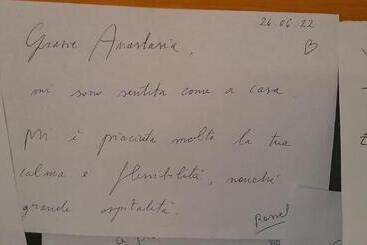 24.06.22
Grazie Anastasia,
mi sono sentita come a casa.
Mi è piaciuta molto la tua
calma e flessibilità, nonché
grande ospitalità.